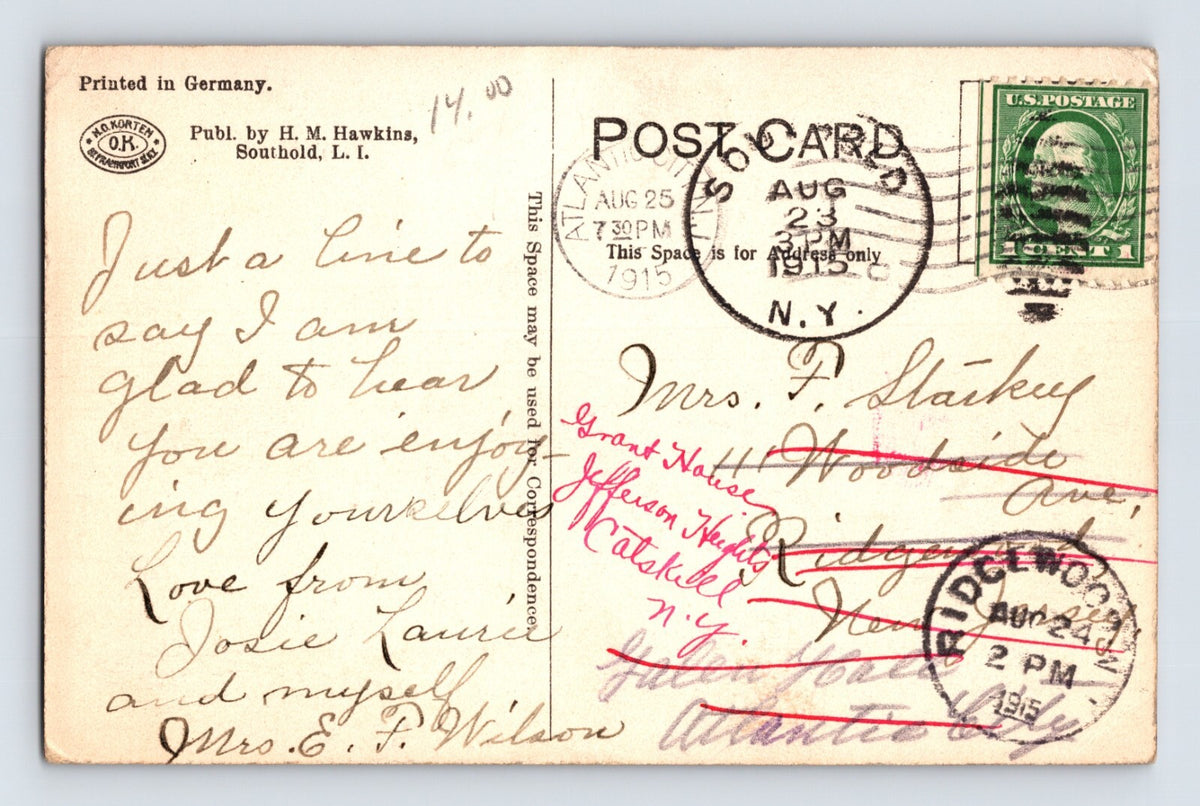 Printed in Germany.
14.00
H.O. KORTEN
O.K.
Publ. by H. M. Hawkins,
Southold, L. I.
POST CARD
U.S. POSTAGE
1 CENT 1
ATLANTIC CITY, N.J.
AUG 25
7 30 PM
1915
SOUTHOLD
AUG
23
3 PM
1915
N.Y.
This Space is for Address only
This Space may be used for Correspondence.
Just a line to
say I am
glad to hear
you are enjoy-
ing yourselves
Love from
Josie Laurie
and myself.
Mrs. E. F. Wilson
Mrs. F. Starkey
111 Woodside
Ave,
Ridgewood
New Jersey
Grant House
Jefferson Heights
Catskill
N.Y.
Galen Hall
Atlantic City
RIDGEWOOD N.J.
AUG 24
2 PM
1915